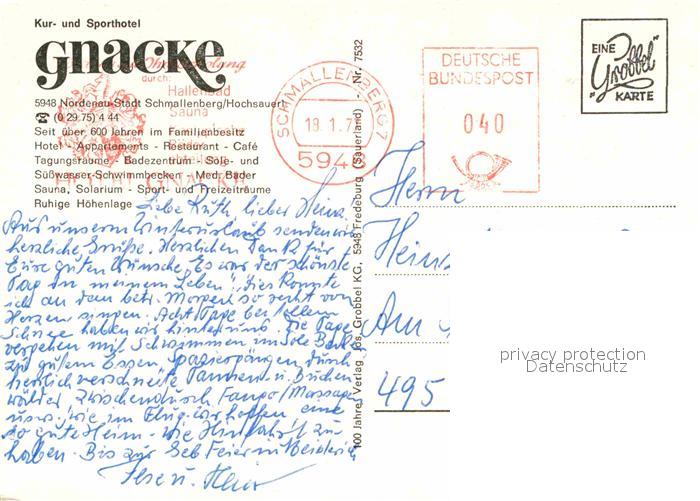 Kur- und Sporthotel
Gnacke
durch:
Hallenbad
Sauna
5948 Nordenau-Stadt Schmallenberg/Hochsauerl.
☎ (0 29 75) 4 44
Seit über 600 Jahren im Familienbesitz
Hotel - Appartements - Restaurant - Café
Tagungsräume - Badezentrum - Sole- und
Süßwasser-Schwimmbecken - Med. Bäder
Sauna, Solarium - Sport- und Freizeiträume
Ruhige Höhenlage
SCHMALLENBERG 7
19.1.7
5948
DEUTSCHE
BUNDESPOST
040
EINE
"Grobbel"
KARTE
100 Jahre Verlag Jos. Grobbel KG, 5948 Fredeburg (Sauerland) - Nr. 7532
Liebe Ruth, lieber Heinz.
Aus unserem Winterurlaub senden wir
herzliche Grüße. Herzlichen Dank für
Eure guten Wünsche „Es war der schönste
Tag in meinem Leben". Dies konnte
ich an dem betr. Morgen so recht von
Herzen singen. Acht Tage bei vollem
Schnee haben wir hinter uns. Die Tage
vergehen mit Schwimmen im Sole Bad
zu gutem Essen, Spaziergängen durch
herrlich verschneite Tannen u. Buchen
wälder, zwischendurch Fango/Massage
usw. wie im Flug. Wir hoffen eine
so gute Heim- wie Hinfahrt zu
haben. Bis zur Geb Feier in
Ilse u.
Herrn
Heinz
Am
495
privacy protection
Datenschutz